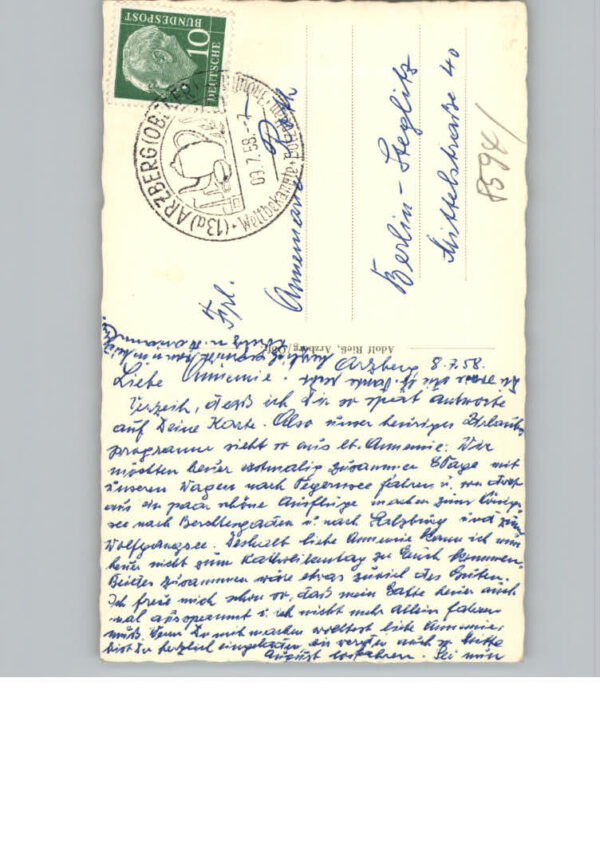 DEUTSCHE
BUNDESPOST
10
(13a) ARZBERG (OB
Weltbekannte Porzellan
09.7.58.-7
Frl.
Annemarie Roth
Berlin-Steglitz
Mittelstraße 40
8594/
Adolf Rieß, Arzberg/Ofr.
Arzberg 8.7.58.
Liebe Annemie.
Verzeih, daß ich dir so spät antworte
auf Deine Karte. Also unser heuriges Urlaubs
programm sieht so aus lb. Annemie: Wir
möchten heuer erstmalig zusammen 8 Tage mit
unseren Wagen nach Tegernsee fahren u. von dort
aus ein paar schöne Ausflüge machen zum Königs
see nach Berchtesgaden u. nach Salzburg und zum
Wolfgangsee. Deshalb liebe Annemie kann ich nun
heute nicht zum Katholikentag zu Euch kommen.
Beides zusammen wäre etwas zuviel des Guten.
Ich freue mich schon so, daß mein Gatte heuer auch
mal ausspannt u. ich nicht mehr allein fahren
muß. Wenn Du mit machen wolltest liebe Annemie,
bist Du herzlich eingeladen, wir werden auch so Mitte
August losfahren. Sei nun